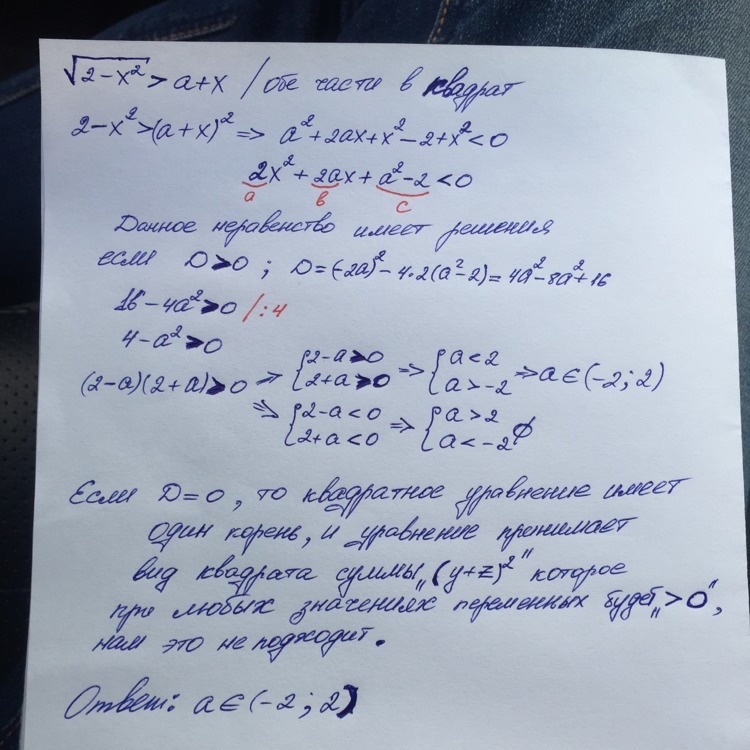 √2-x² > a+x / обе части в квадрат
2-x²>(a+x)² => a²+2ax+x²-2+x²<0
2x²+2ax+a²-2<0
a в c
Данное неравенство имеет решения
если D>0 ; D=(-2a)²-4·2(a²-2)=4a²-8a²+16
16-4a²>0 /:4
4-a²>0
(2-a)(2+a)>0 => {2-a>0 2+a>0 => {a<2 a>-2 => a∈(-2;2)
=> {2-a<0 2+a<0 => {a>2 a<-2 ∅
Если D=0, то квадратное уравнение имеет
один корень, и уравнение принимает
вид квадрата суммы „(y+z)²" которое
при любых значениях переменных будет „>0",
нам это не подходит.
Ответ: a∈(-2;2)